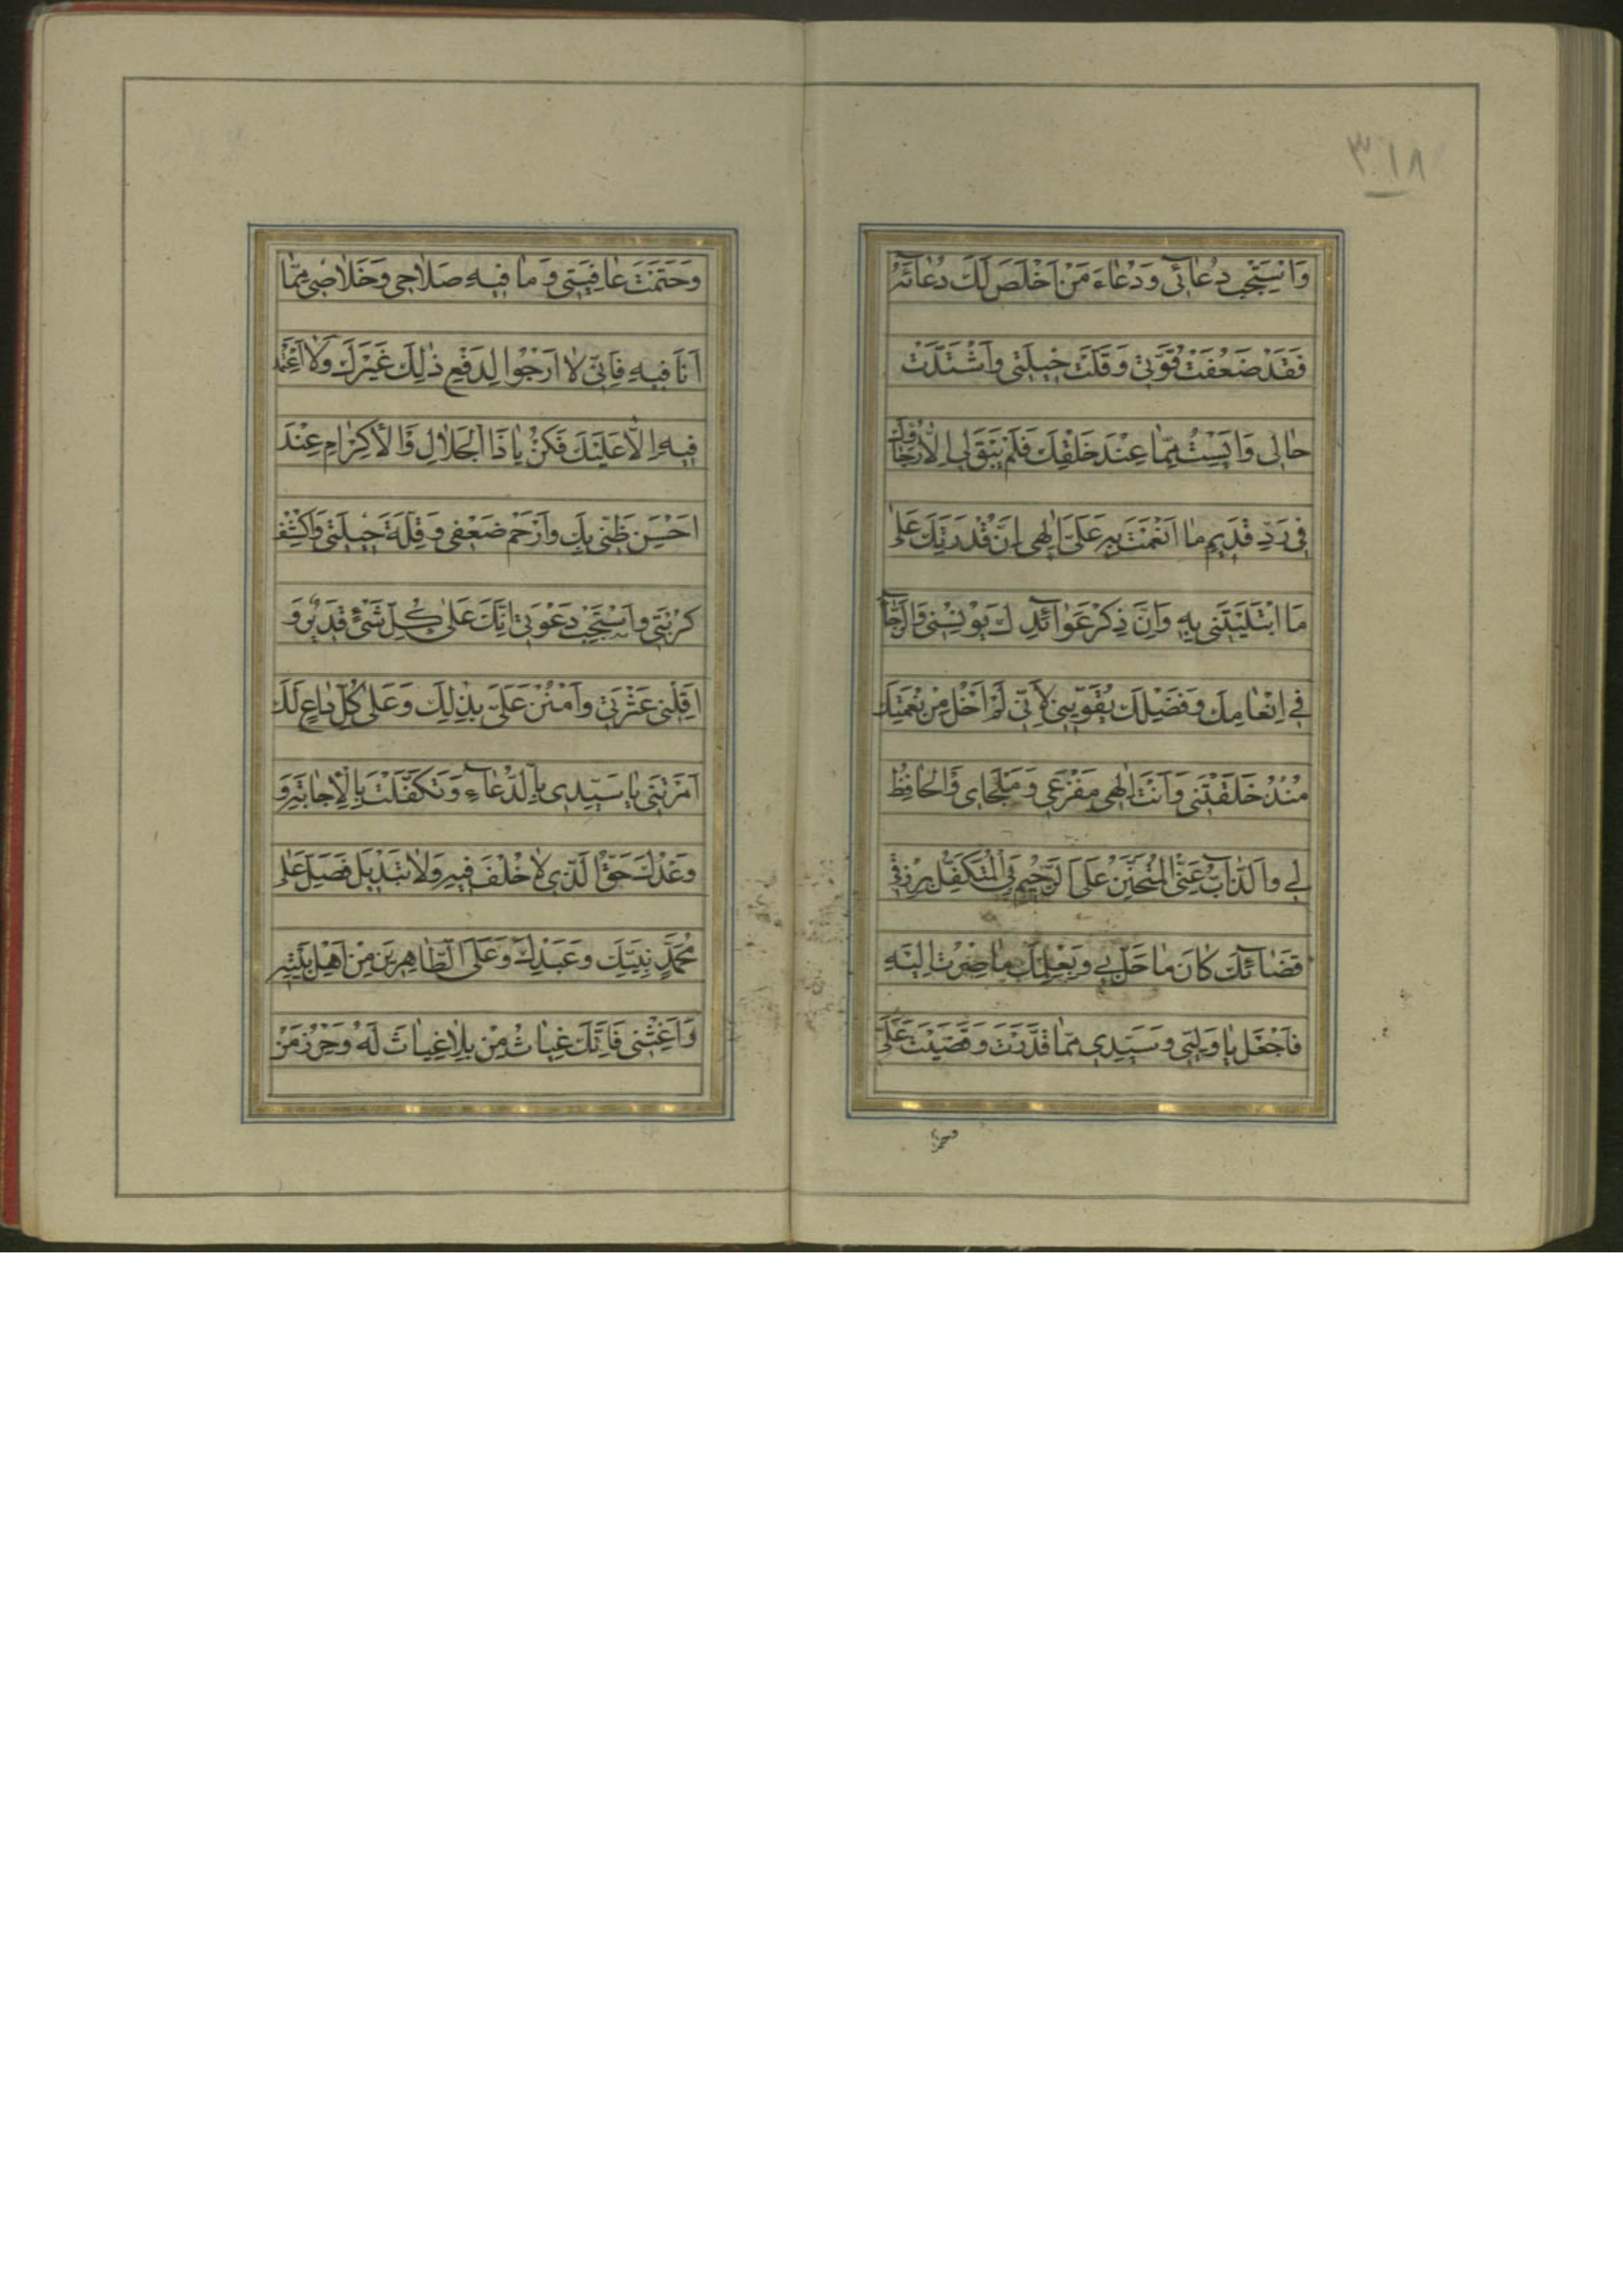 ٣١٨
وَاسْتَجِبْ دُعائى وَدُعاءَ مَنْ اَخْلَصَ لَكَ دُعآئَهُ
فَقَدْ ضَعُفَتْ قُوَّتى وَقَلَّتْ حيلَتى وَاشْتَدَّتْ
حالى وَاَيِسْتُ مِمّا عِنْدَ خَلْقِكَ فَلَمْ يَبْقَ لى اِلّا رَجاؤُكَ
فى رَدِّ قَديمِ ما اَنْعَمْتَ بِهِ عَلَىَّ اِلهى اِنَّ قُدْرَتَكَ عَلى
مَا ابْتَلَيْتَنى بِهِ وَاِنَّ ذِكْرَ عَوآئِدِكَ يُونِسُنى وَالرَّجآءَ
فى اِنْعامِكَ وَفَضْلِكَ يُقَوّينى لِاَنّى لَمْ اَخْلُ مِنْ نِعْمَتِكَ
مُنْذُ خَلَقْتَنى وَاَنْتَ اِلهى مَفْزَعى وَمَلْجَاى وَالْحافِظُ
لى وَالذّآبُّ عَنّى الْمُتَحَنِّنُ عَلَىَّ الرَّحيمُ بِى الْمُتَكَفِّلُ بِرِزْقى
قَضآئِكَ كانَ ما حَلَّ بى وَبِعِلْمِكَ ما صِرْتُ اِلَيْهِ
فَاجْعَلْ يا وَلِيّى وَسَيِّدى مِمّا قَدَّرْتَ وَقَضَيْتَ عَلَىَّ
وَحَتَمْتَ عافِيَتى وَما فيهِ صَلاحى وَخَلاصى مِمّا
اَنَا فيهِ فَاِنّى لا اَرْجُوا لِدَفْعِ ذلِكَ غَيْرَكَ وَلا اَعْتَمِدُ
فيهِ اِلّا عَلَيْكَ فَكُنْ يا ذَا الْجَلالِ وَالْاِكْرامِ عِنْدَ
اَحْسَنِ ظَنّى بِكَ وَارْحَمْ ضَعْفى وَقِلَّةَ حيلَتى وَاكْشِفْ
كُرْبَتى وَاسْتَجِبْ دَعْوَتى اِنَّكَ عَلى كُلِّ شَئٍ قَديرٌ وَ
اَقِلْنى عَثْرَتى وَامْنُنْ عَلَىَّ بِذلِكَ وَعَلى كُلِّ داعٍ لَكَ
اَمَرْتَنى يا سَيِّدى بِالدُّعآءِ وَتَكَفَّلْتَ بِالْاِجابَةِ وَ
وَعْدُكَ حَقُّ الَّذى لا خُلْفَ فيهِ وَلا تَبْديلَ فَصَلِّ عَلى
مُحَمَّدٍ نَبِيِّكَ وَعَبْدِكَ وَعَلَى الطّاهِرينَ مِنْ اَهْلِ بَيْتِهِ
وَاَغِثْنى فَاِنَّكَ غِياثُ مِنْ بِلا غِياثَ لَهُ وَحِرْزُ مَنْ